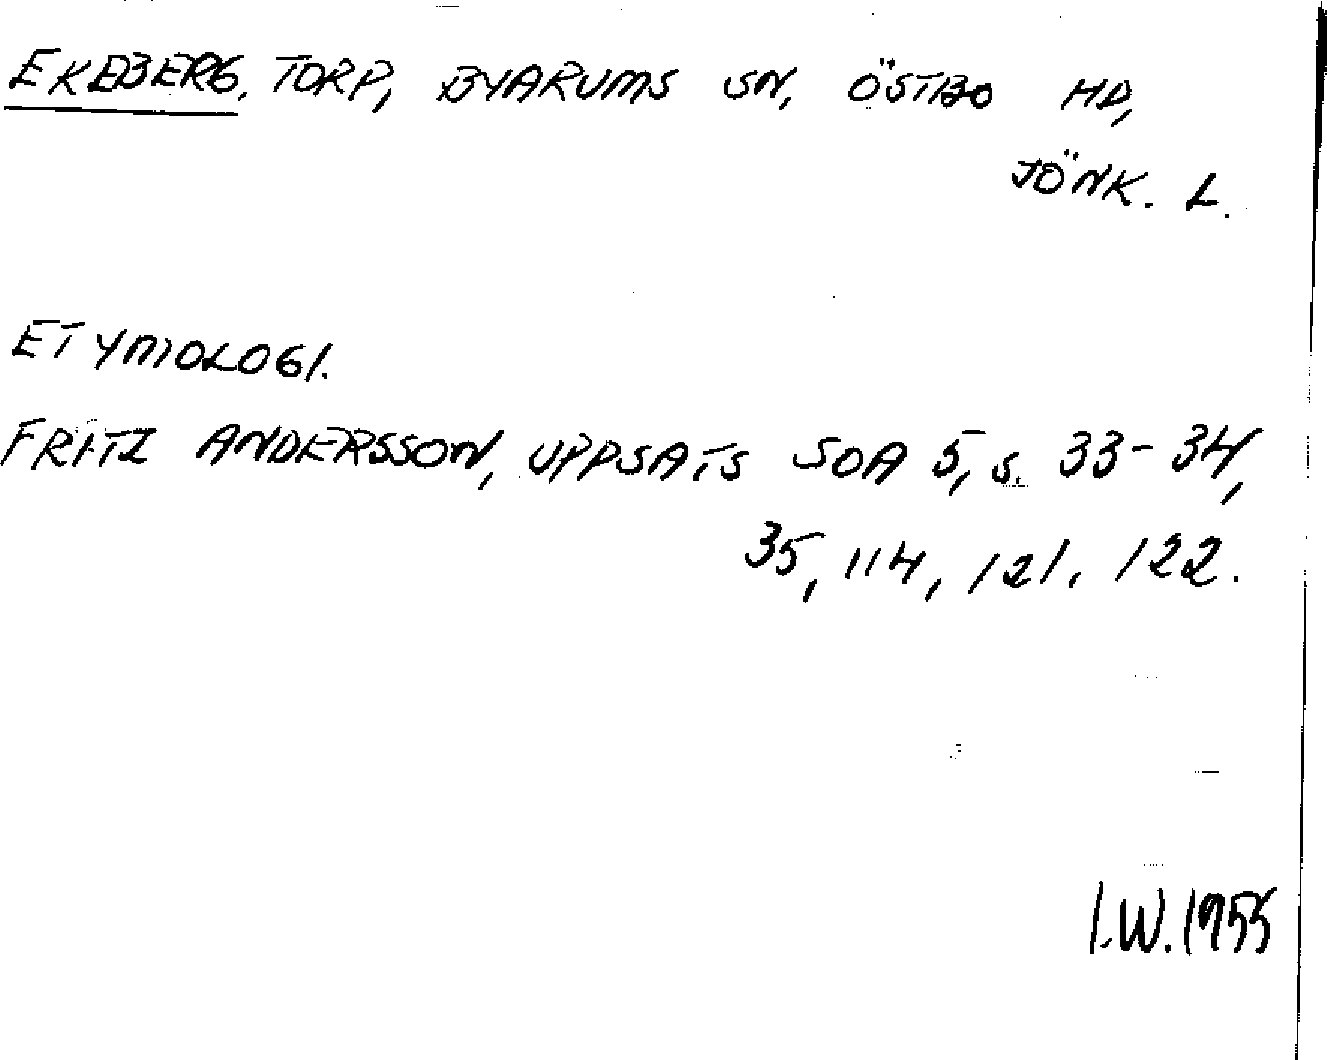 EKEBERG, TORP, BYARUMS SN, ÖSTBO HD,
JÖNK. L.
ETYMOLOGI.
FRITZ ANDERSSON, UPPSATS SOA 5, s. 33-34,
35, 114, 121, 122.
I.W. 1955